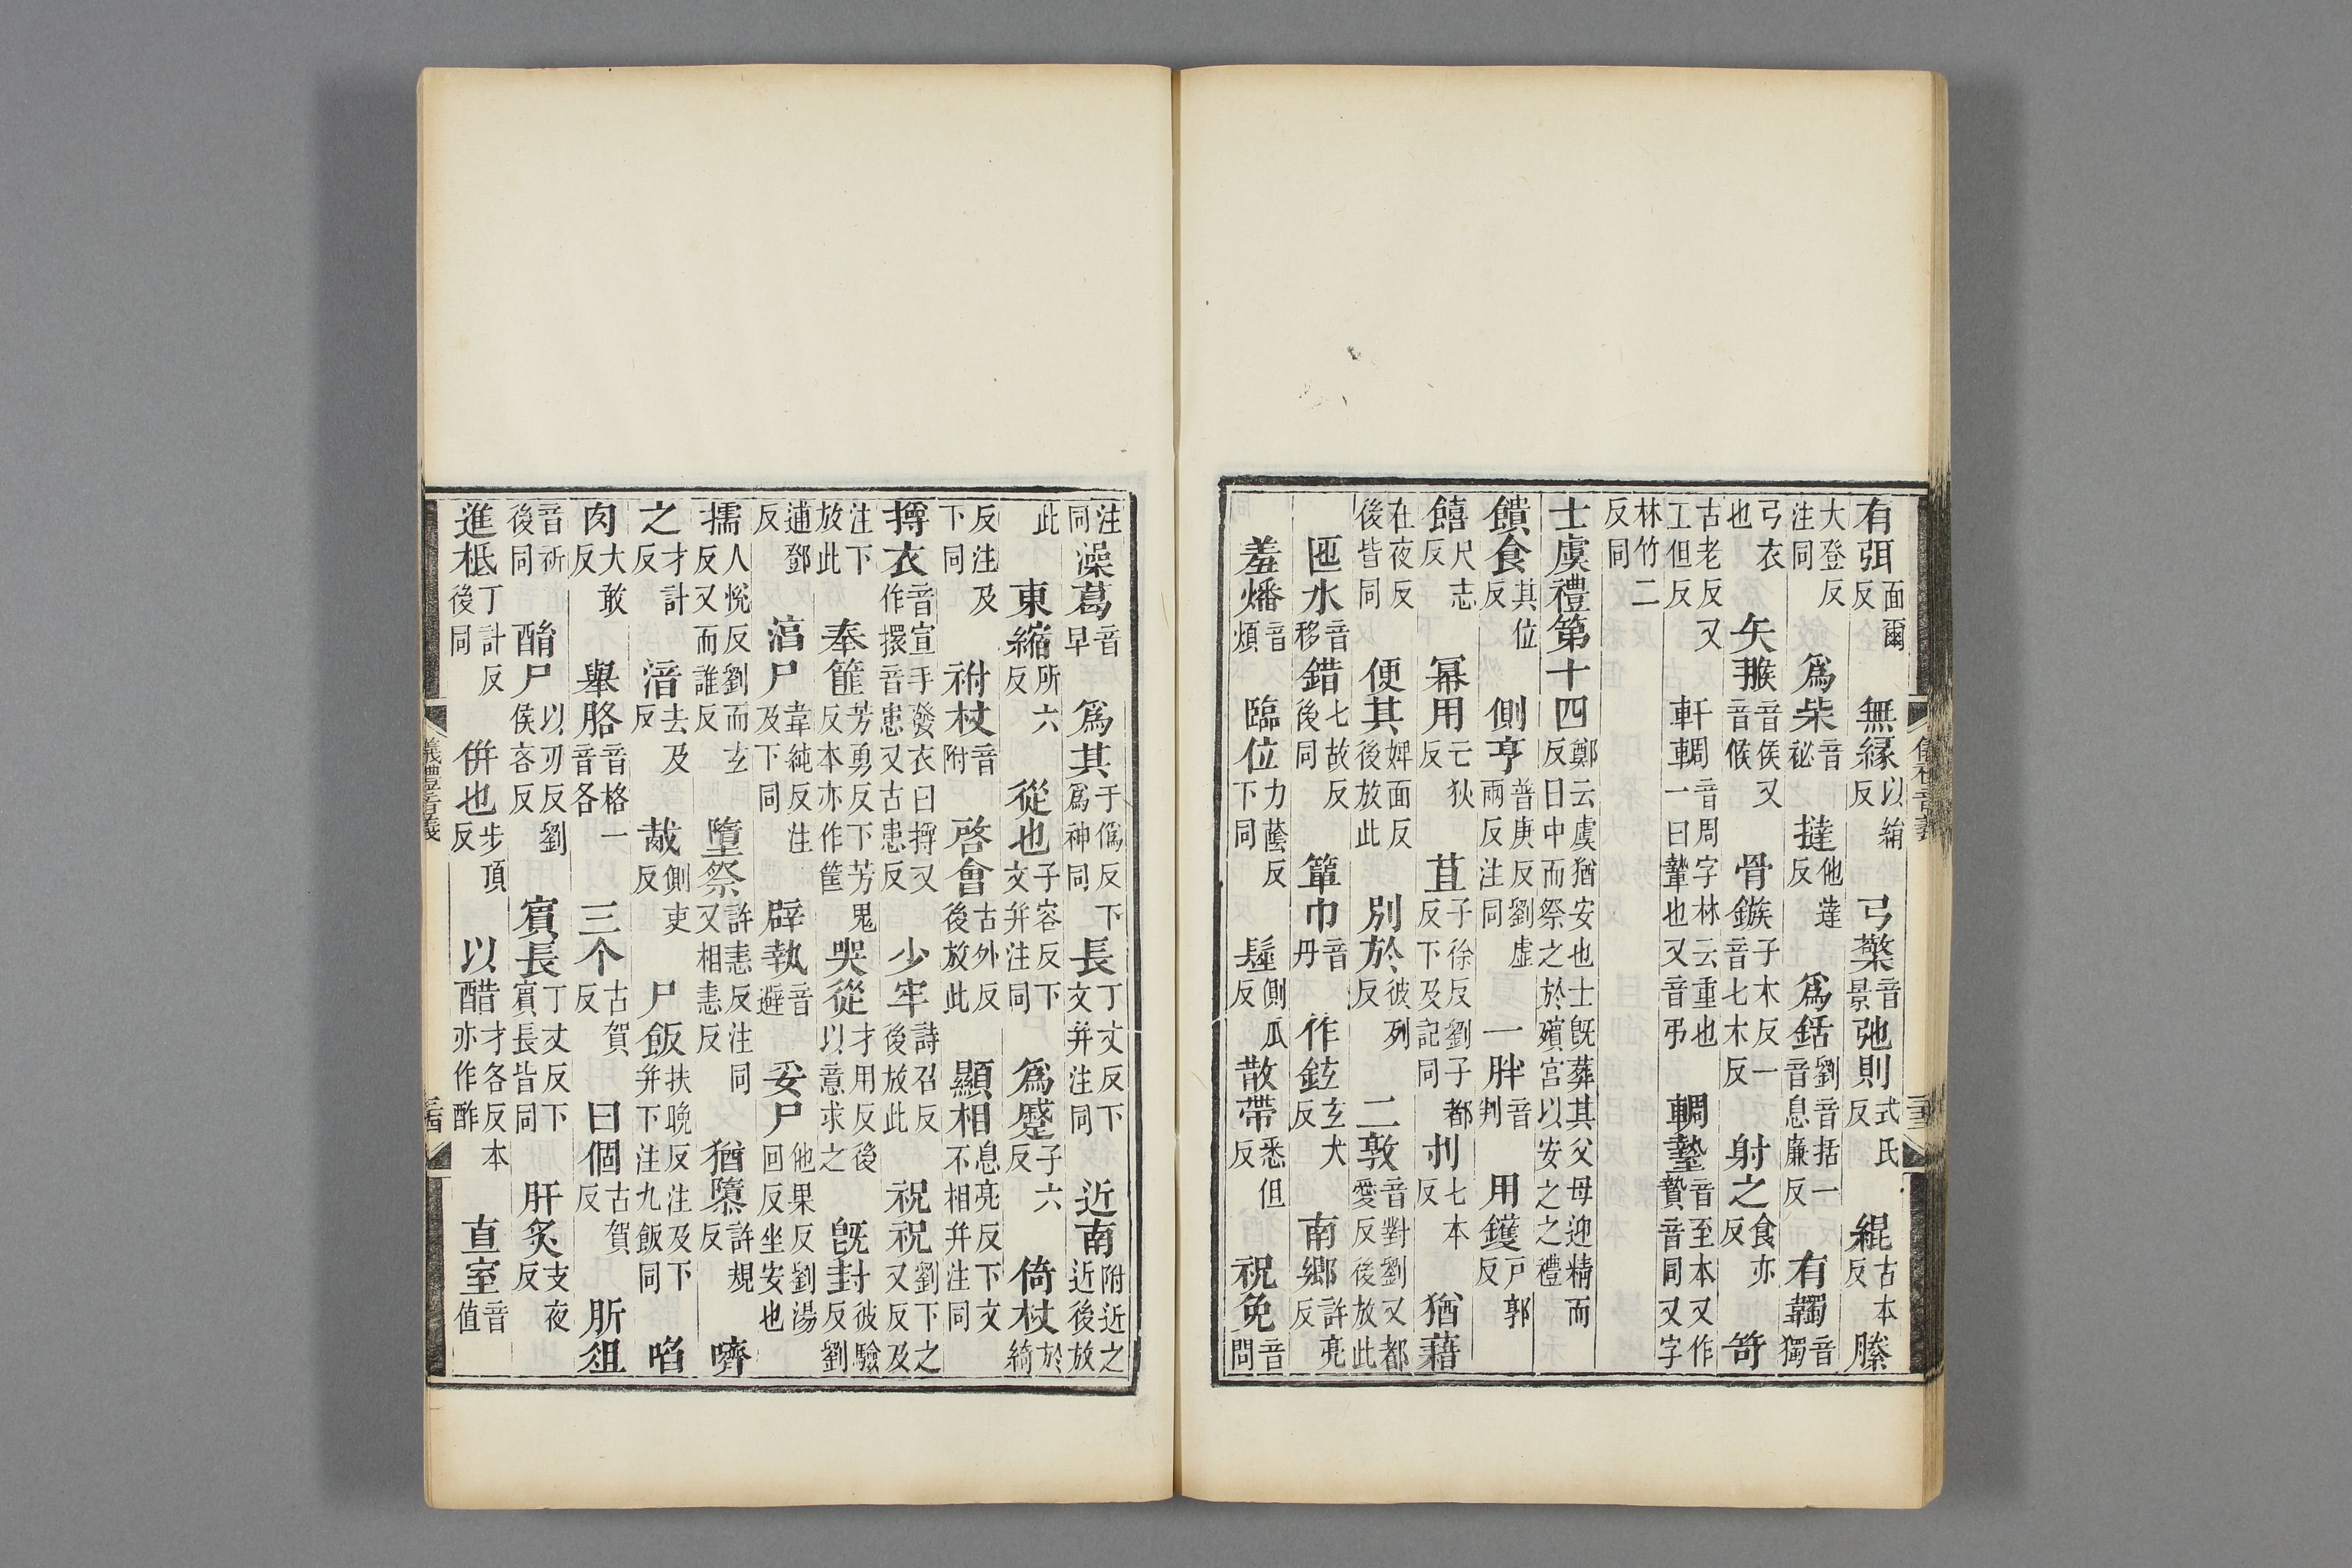 有弭面爾反 無緣以絹反 弓檠音景 弛則式氏反 緄古本反 縢
大登反注同 為柴音祕 撻他達反 為銛劉音括一音息廉反 有韣音獨
弓衣也 矢猴音侯又音候 骨鏃子木反一音七木反 射之食亦反 笴
古老反又工但反 軒輖音周字林云重也一曰蟄也又音弔 輖墊音至本又作贄音同又字
林竹二反同
士虞禮第十四鄭云虞猶安也士旣葬其父母迎精而反日中而祭之於殯宮以安之之禮
饋食其位反 側亨普庚反劉虛兩反注同 一胖音判 用鑊戶郭反
饎尺志反 冪用亡狄反 苴子徐反劉子都反下及記同 刌七本反 猶藉
在夜反後皆同 便其婢面反後放此 別於彼列反 二敦音對劉又都愛反後放此
匜水音移 錯七故反後同 簞巾音丹 作鉉玄犬反 南鄉許亮反
羞燔音煩 臨位力蔭反下同 髽側瓜反 散帶悉但反 祝免音問
注同 澡葛音早 為其于偽反下為神同 長丁丈反下文并注同 近南附近之近後放
此 東縮所六反 從也子容反下文并注同 為蹙子六反 倚杖於綺
反注及下同 祔杖音附 啓會古外反後放此 顯相息亮反下文不相并注同
撙衣音宣手發衣曰撙又作擐音患又古患反 少牢詩召反後放此 祝祝劉下之又反及
注下放此 奉篚芳勇反下芳鬼反本亦作筐 哭從才用反後以意求之 旣封彼驗反劉
逋鄧反 淳尸章純反注及下同 辟執音避 妥尸他果反劉湯回反坐安也
擩人悅反劉而玄反又而誰反 墮祭許恚反注同又相恚反 猶隳許規反 嚌
之才計反 湆去及反 胾側吏反 尸飯扶晚反注及下并下注九飯同 啗
肉大敢反 舉胳音格一音各 三个古賀反 曰個古賀反 肵俎
音祈後同 酳尸以刃反劉侯吝反 賓長丁丈反下賓長皆同 肝炙支夜反
進柢丁計反後同 併也步頂反 以醋才各反本亦作酢 直室音值
儀禮音義